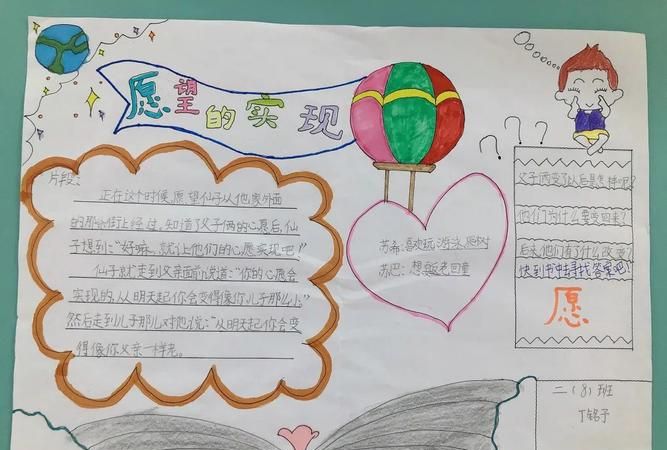 愿望的实现
片段:
正在这个时候,愿望仙子从他家外面
的那个街上经过,知道了父子俩的心愿后,仙
子想到:“好嘛,就让他们的心愿实现吧!”
仙子就走到父亲面前说道:“你的心愿会
实现的,从明天起你会变得像你儿子那么小”
然后走到儿子那儿对他说:“从明天起你会变
得像你父亲一样老。
苏希:喜欢玩游泳、爬树
苏巴:想返老回童
? ? ?
父子俩变了以后是怎样呢?
他们为什么要变回来?
后来他们有了什么改变?
快到书中去寻找答案吧!
愿
二(8)班
丁铭予